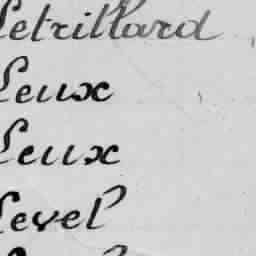 Letrillard
Leux
Leux
Level